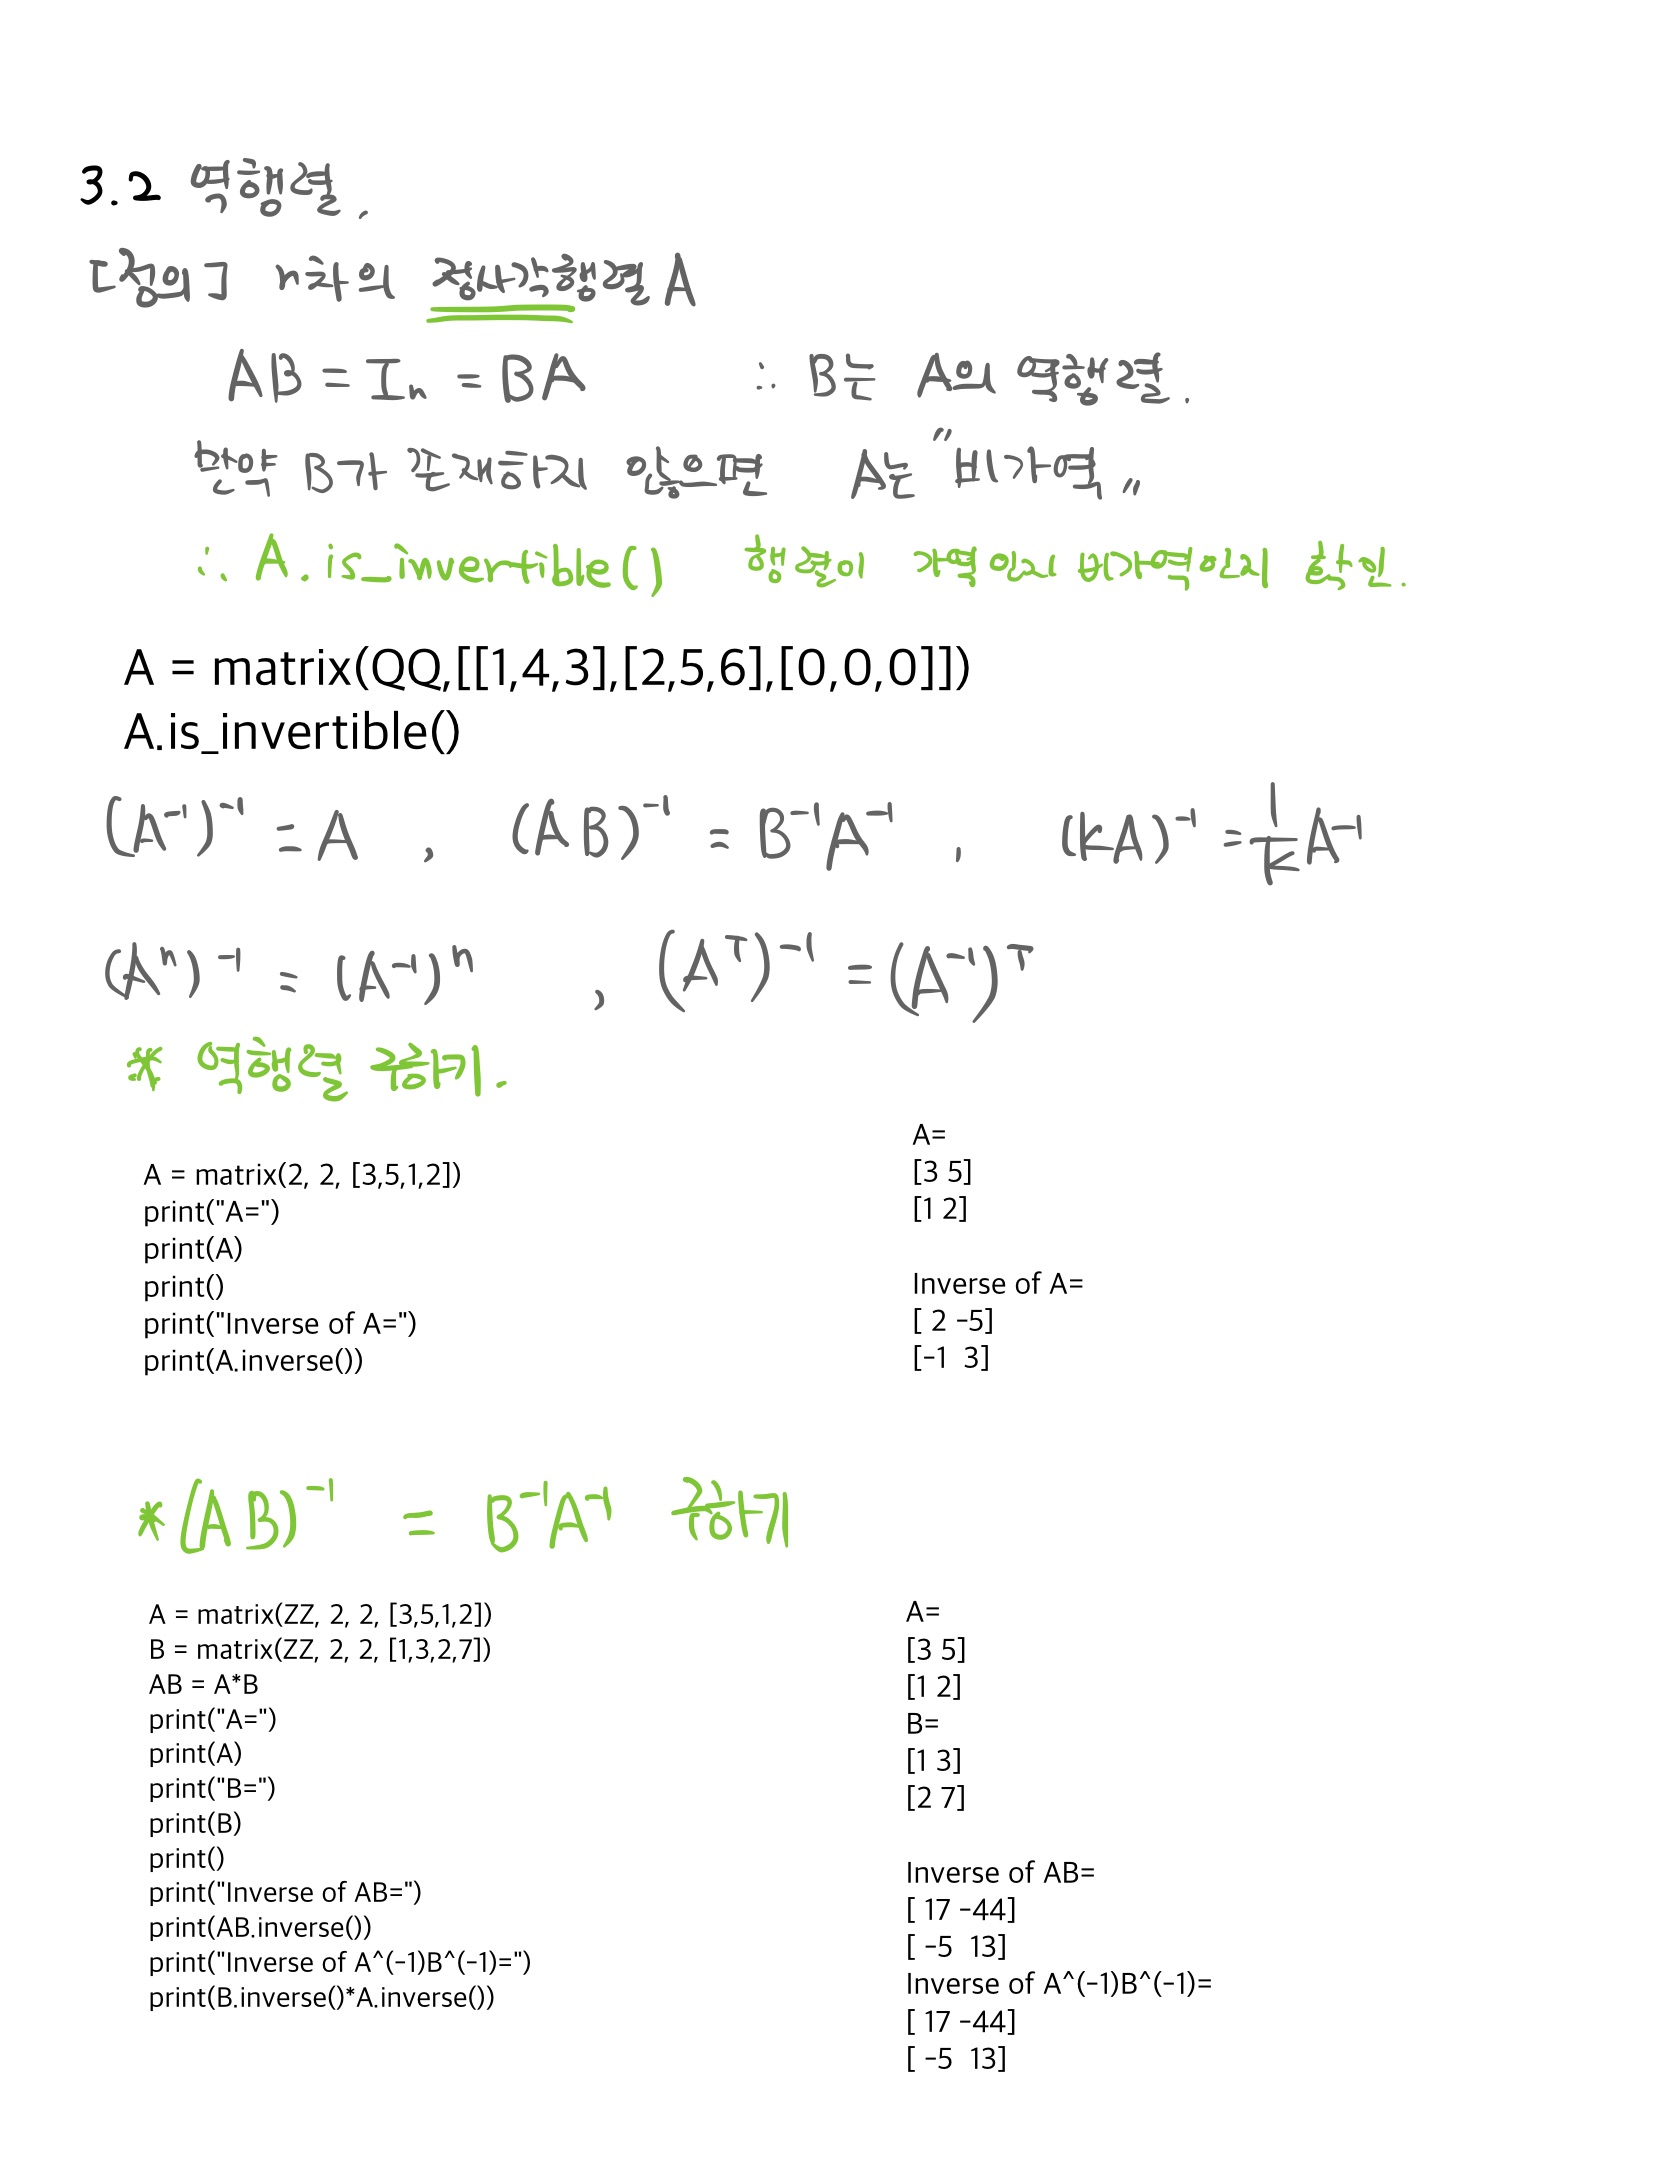 3.2 역행렬.
[정의] n차의 정사각행렬 A
AB = Iₙ = BA ∴ B는 A의 역행렬.
만약 B가 존재하지 않으면 A는 "비가역"
∴ A.is_invertible() 행렬이 가역인지 비가역인지 확인.
A = matrix(QQ,[[1,4,3],[2,5,6],[0,0,0]])
A.is_invertible()
(A⁻¹)⁻¹ = A , (AB)⁻¹ = B⁻¹A⁻¹ , (kA)⁻¹ = 1/k A⁻¹
(Aⁿ)⁻¹ = (A⁻¹)ⁿ , (Aᵀ)⁻¹ = (A⁻¹)ᵀ
* 역행렬 구하기.
A = matrix(2, 2, [3,5,1,2])
print("A=")
print(A)
print()
print("Inverse of A=")
print(A.inverse())
A=
[3 5]
[1 2]
Inverse of A=
[ 2 -5]
[-1  3]
* (AB)⁻¹ = B⁻¹A⁻¹ 구하기
A = matrix(ZZ, 2, 2, [3,5,1,2])
B = matrix(ZZ, 2, 2, [1,3,2,7])
AB = A*B
print("A=")
print(A)
print("B=")
print(B)
print()
print("Inverse of AB=")
print(AB.inverse())
print("Inverse of A^(-1)B^(-1)=")
print(B.inverse()*A.inverse())
A=
[3 5]
[1 2]
B=
[1 3]
[2 7]
Inverse of AB=
[ 17 -44]
[ -5  13]
Inverse of A^(-1)B^(-1)=
[ 17 -44]
[ -5  13]